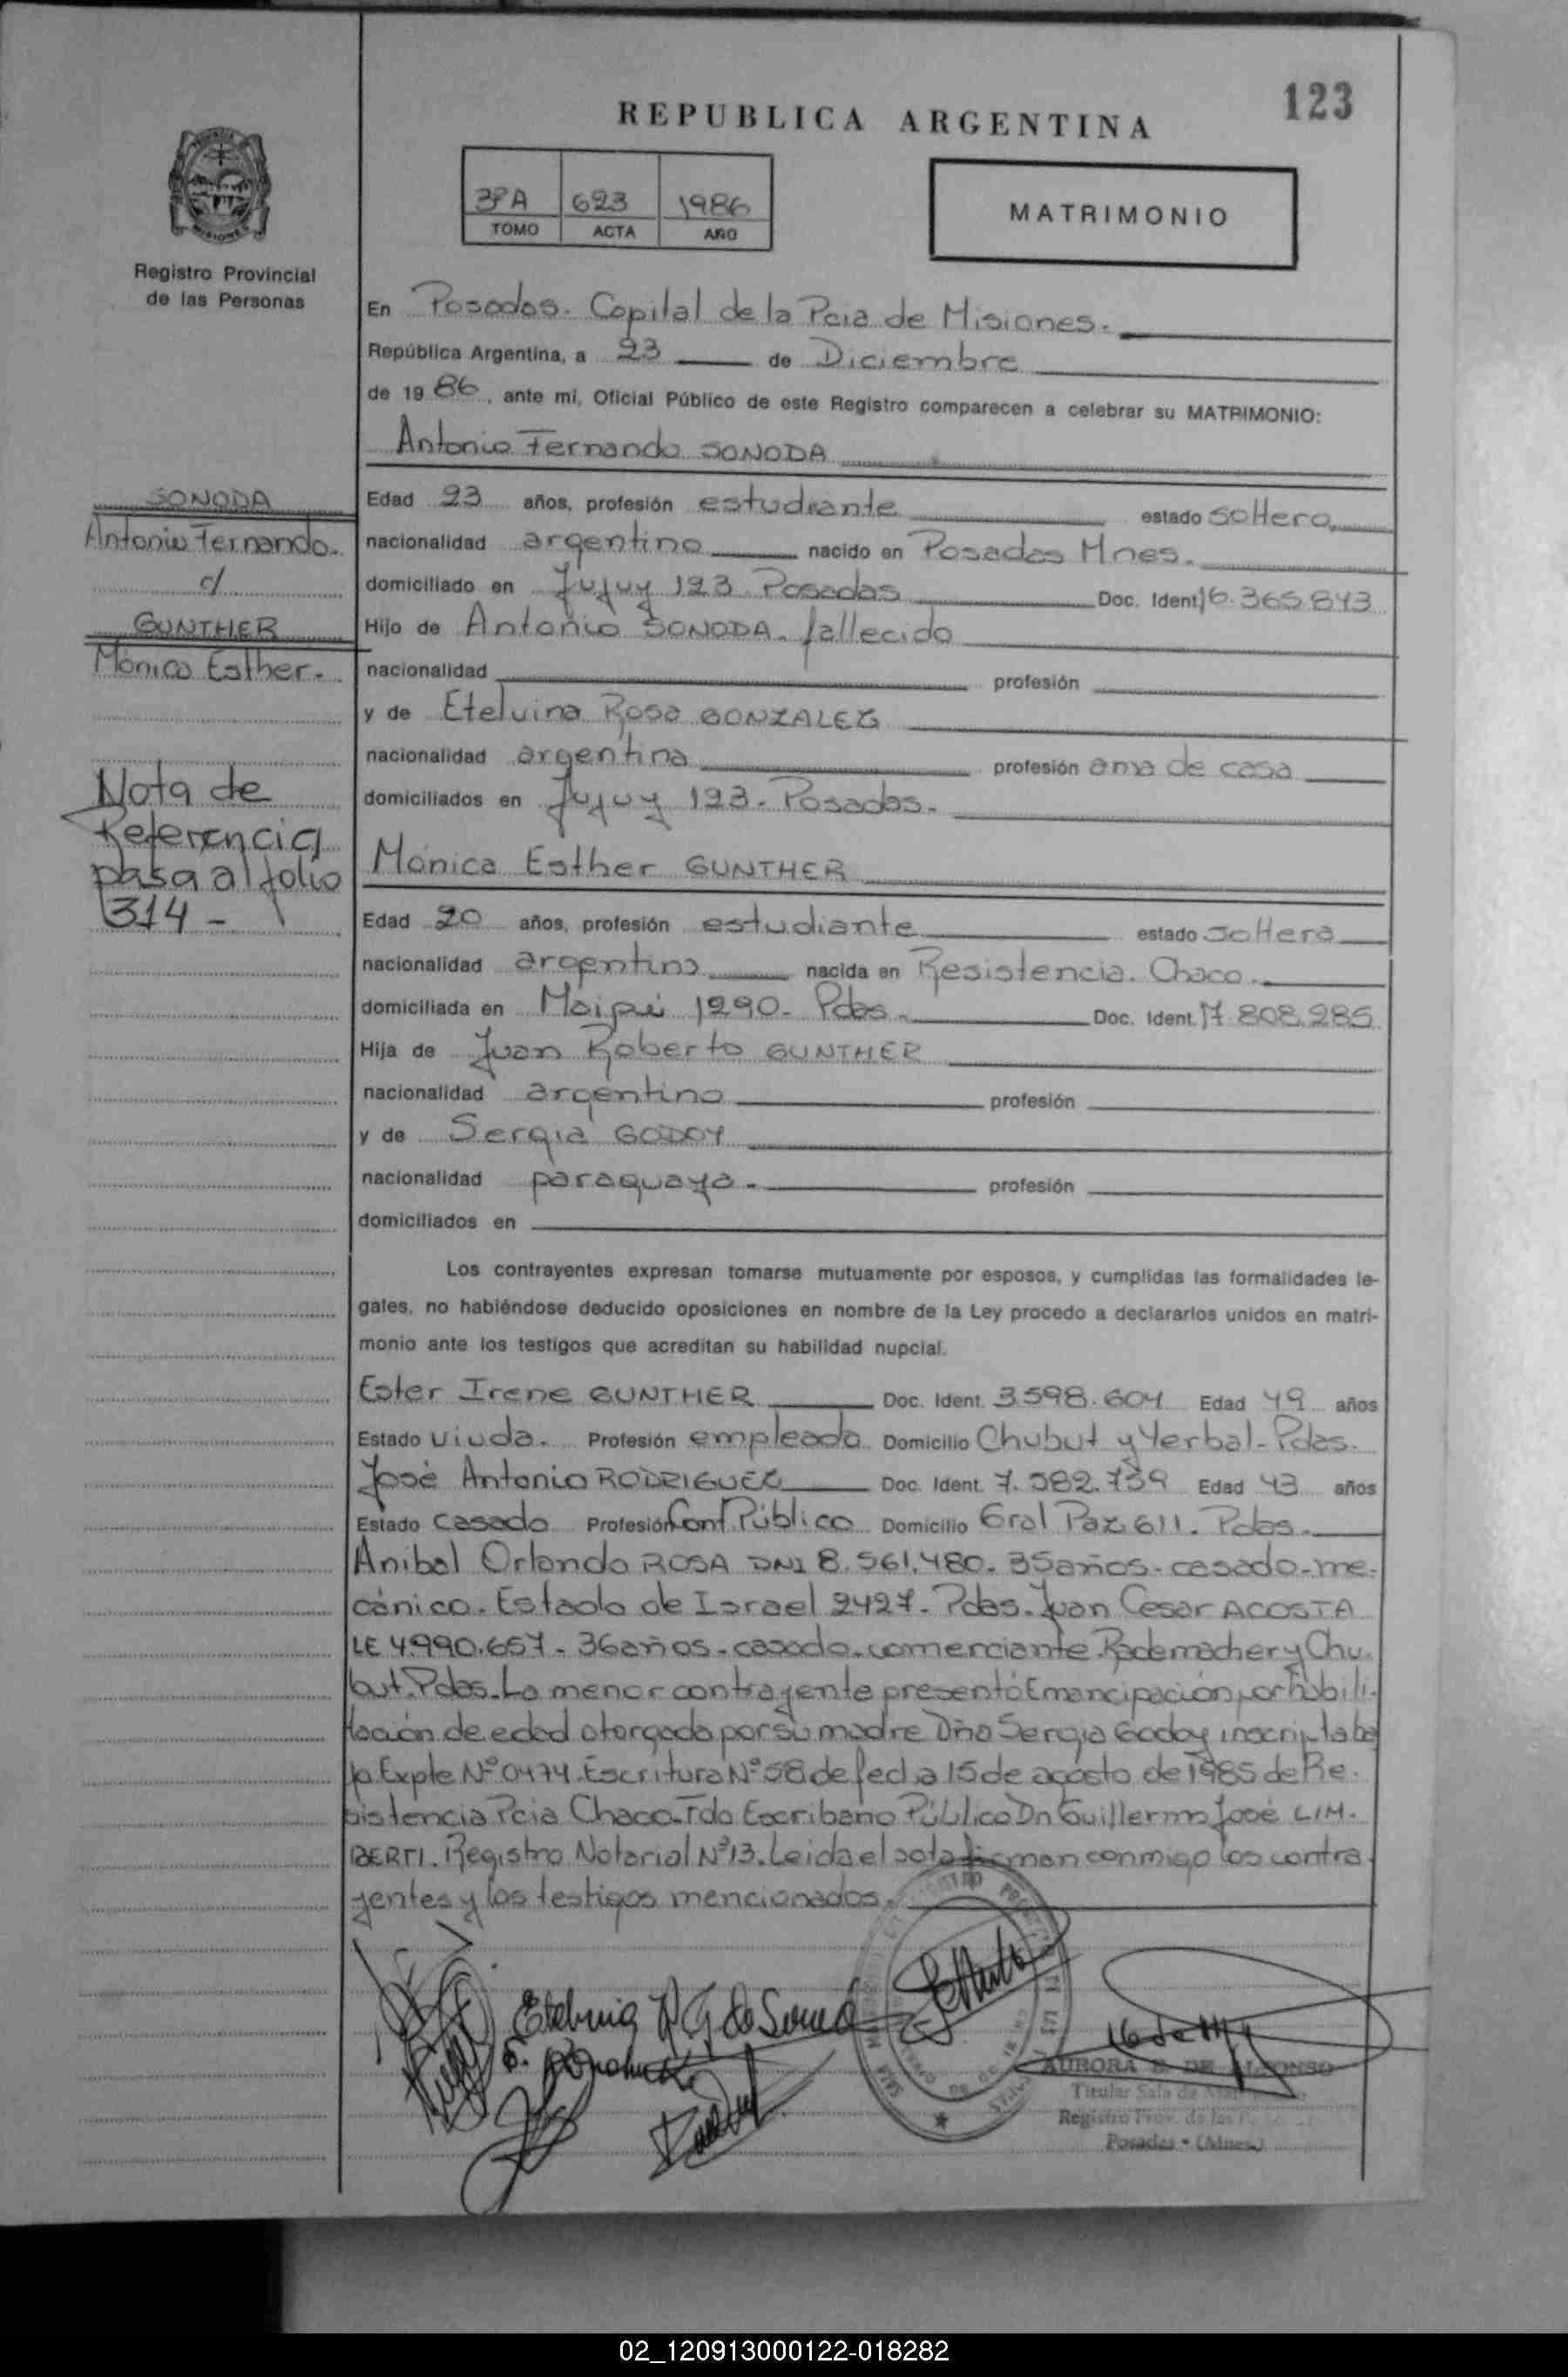 123
REPUBLICA ARGENTINA
3ºA 623 1986
TOMO ACTA AÑO
MATRIMONIO
Registro Provincial
de las Personas
En Posadas. Capital de la Pcia de Misiones.
República Argentina, a 23 de Diciembre
de 1986, ante mí, Oficial Público de este Registro comparecen a celebrar su MATRIMONIO:
Antonio Fernando SONODA
SONODA
Antonio Fernando.
c/
GUNTHER
Mónica Esther.
Edad 23 años, profesión estudiante estado soltero
nacionalidad argentino nacido en Posadas Mnes.
domiciliado en Jujuy 123. Posadas Doc. Ident. 16.365.843
Hijo de Antonio SONODA. fallecido
nacionalidad profesión
y de Etelvina Rosa GONZALEZ
nacionalidad argentina profesión ama de casa
domiciliados en Jujuy 123. Posadas.
Nota de
Referencia
pasa al folio
314 -
Mónica Esther GUNTHER
Edad 20 años, profesión estudiante estado soltera
nacionalidad argentina nacida en Resistencia. Chaco.
domiciliada en Maipú 1290. Pdas. Doc. Ident. 17.808.285
Hija de Juan Roberto GUNTHER
nacionalidad argentino profesión
y de Sergia GODOY
nacionalidad paraguaya. profesión
domiciliados en
Los contrayentes expresan tomarse mutuamente por esposos, y cumplidas las formalidades le-
gales, no habiéndose deducido oposiciones en nombre de la Ley procedo a declararlos unidos en matri-
monio ante los testigos que acreditan su habilidad nupcial.
Ester Irene GUNTHER Doc. Ident. 3.598.604 Edad 49 años
Estado viuda. Profesión empleada Domicilio Chubut y Yerbal - Pdas.
José Antonio RODRIGUEZ Doc. Ident. 7.582.739 Edad 43 años
Estado casado Profesión Cont. Público Domicilio Gral Paz 611. Pdas.
Anibal Orlando ROSA DNI 8.561.480. 35 años - casado - me-
cánico. Estado de Israel 2427. Pdas. Juan Cesar ACOSTA
LE 4.990.657 - 36 años - casado - comerciante. Rademacher y Chu-
but. Pdas. La menor contrayente presentó Emancipación por habili-
tación de edad otorgada por su madre Dña Sergia Godoy inscripta ba
jo Expte Nº 0474. Escritura Nº 58 de fecha 15 de agosto de 1985 de Re-
sistencia Pcia Chaco. Fdo Escribano Público Dn Guillermo José LIM-
BERTI. Registro Notarial Nº 13. Leida el acta firman conmigo los contra-
yentes y los testigos mencionados.
Etelvina R G de Sonoda
AURORA E. DE ALFONSO
Titular Sala de
Registro Prov. de las
Posadas - (Mnes.)
02_120913000122-018282